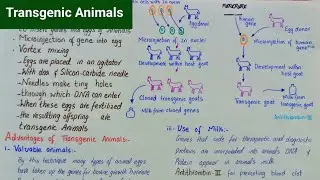 Transgenic Animals
Microinjection of gene into egg
Vortex mixing
Eggs are placed in an agitator
With DNA of Silicon-carbide needle
Needles make tiny holes
through which DNA can enter
When these eggs are fertilized
the resulting offspring are
transgenic Animals
Advantages of Transgenic Animals:-
i- Valuable animals:-
By this technique many types of animal eggs
have taken up the genes for bovine growth hormone
Egg donor
Microinjection in nuclei
Development within host goat
Cloned transgenic goats
Milk from cloned goats
Human gene
Egg donor
Microinjection of human gene
Development within host goat
Transgenic goat
Milk from transgenic goat
Antithrombin-III
iii- Use of Milk:-
Genes that code for therapeutic and diagnostic
proteins are incorporated into animal's DNA &
Protein appear in animal's milk
Antithrombin-III for preventing blood clot